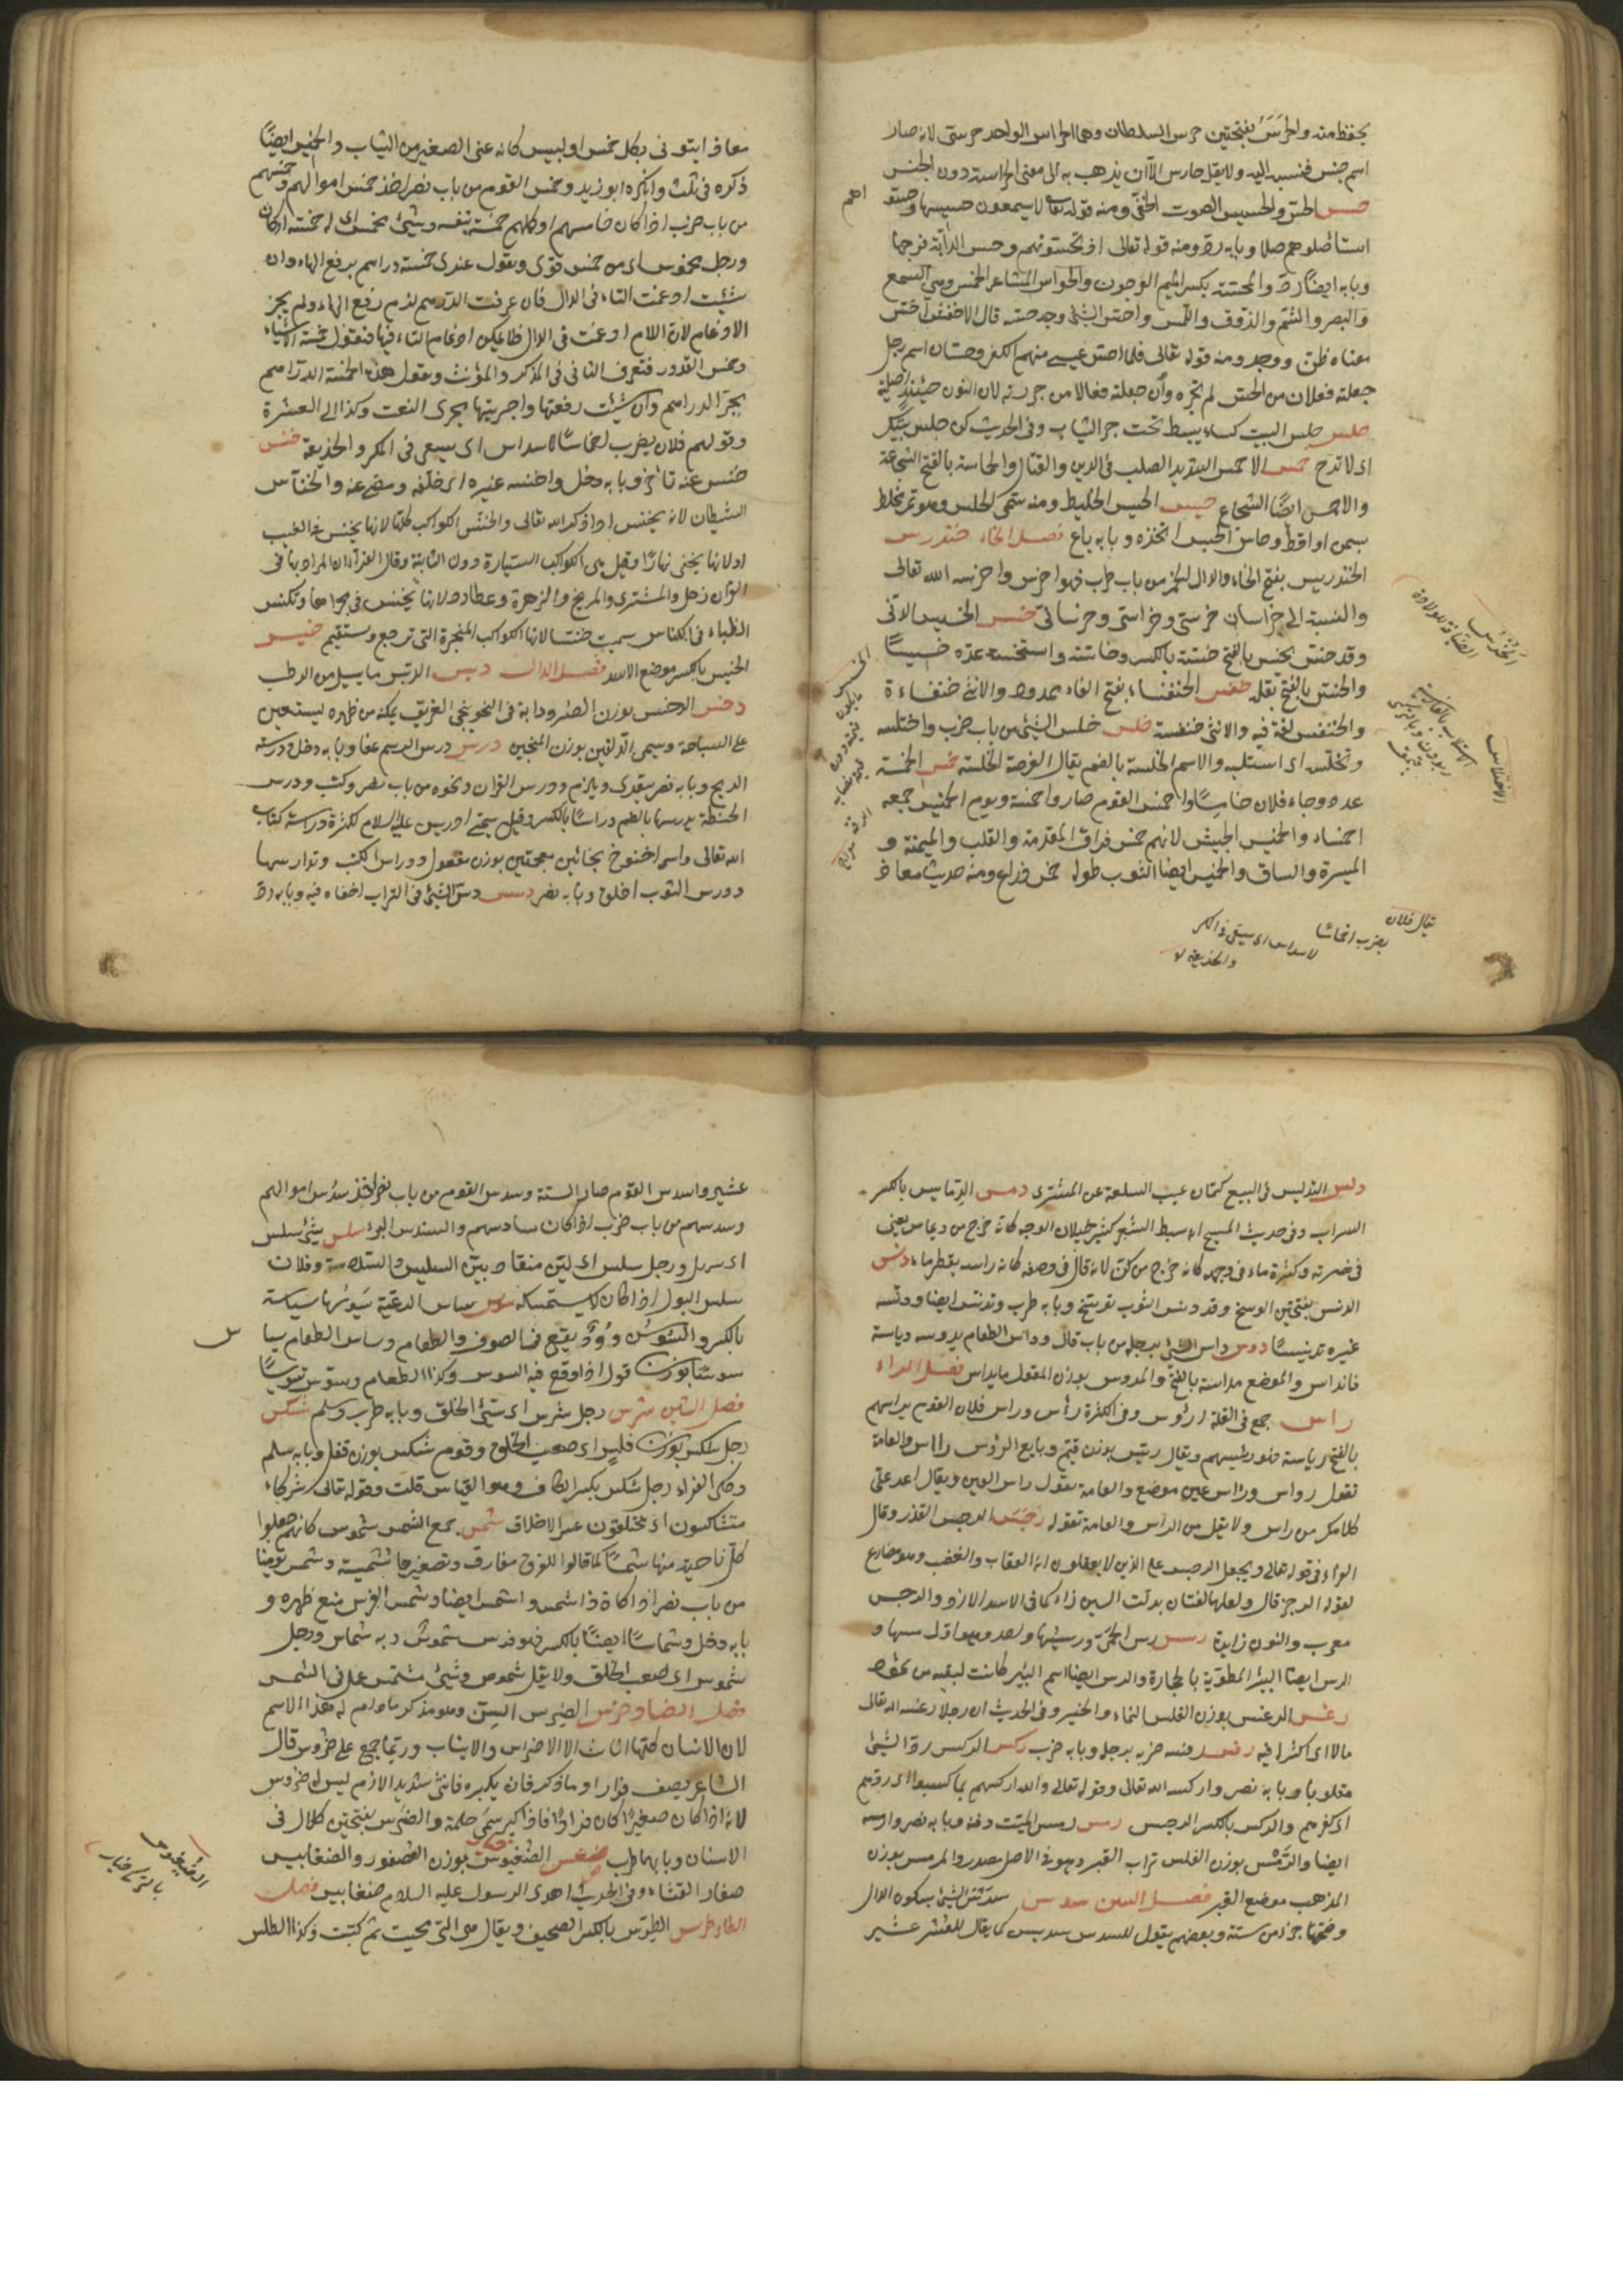 يحفظ منه والحرس بفتحتين حرس السلطان وهم الحراس الواحد حرسى لانه صار
اسم جنس فنسب اليه ولا يقل حارس الا ان يذهب به الى معنى الحراسة دون الجنس
حسس الحس والحسيس الصوت الخفى ومنه قوله تعالى لا يسمعون حسيسها وحسوهم
استأصلوهم وبابه رد ومنه قوله تعالى اذ تحسونهم وحس الدابة فرجنها
وبابه ايضا رد والمحسة بكسر الميم الفرجون والحواس المشاعر الخمس وهى السمع
والبصر والشم والذوق واللمس واحس الشئ وجد حسه قال الاخفش احس
معناه ظن ووجد ومنه قوله تعالى فلما احس عيسى منهم الكفر وحسان اسم رجل
جعلته فعلان من الحس لم تجره وان جعلته فعالا من اجريته لان النون حينئذ اصلية
حلس حلس البيت كساء يبسط تحت حر الثياب وفى الحديث كن حلس بيتك
اى لا تبرح حمس الاحمس الشديد الصلب فى الدين والقتال والحماسة بالفتح الشجاعة
والاحمس ايضا الشجاع حيس الحيس الخليط ومنه سمى الحيس وهو تمر يخلط
بسمن واقط وحاس الحيس اتخذه وبابه باع فصل الخاء خندرس
الخندريس بفتح الخاء والدال الخمر من باب طرب فهو اخرس واخرسه الله تعالى
والنسبة الى خراسان خرسى وخراسى وخراسانى خسس الخسيس الدنى
وقد خس يخس بالفتح خسة بالكسر وخساسة واستخسه عده خسيسا
والخس بالفتح بقلة خفس الخنفساء بفتح الفاء ممدود والانثى خنفساءة
والخنفس لغة فيه والانثى خنفسة خلس خلس الشئ من باب ضرب واختلسه
وتخلسه اى استلبه والاسم الخلسة بالضم يقال الفرصة الخلسة خمس الخمسة
عدد وجاء فلان خامسا واخمس القوم صاروا خمسة ويوم الخميس جمعه
اخمساء والخميس الجيش لانهم خمس فرق المقدمة والقلب والميمنة و
الميسرة والساق والخميس ايضا الثوب طوله خمس اذرع ومنه حديث معاذ
يقال فلان
يضرب اخماسا
لاسداس اى يسعى فى المكر
والخديعة
معاذ ايتونى بكل خميس او لبيس كانه عنى الصغير من الثياب والخميس ايضا
ذكره فى ثلث وانكره ابو زيد وخمس القوم من باب نصر اخذ خمس اموالهم وخمسهم
من باب ضرب اذا كان خامسهم او كلهم خمسة بنفسه وشئ مخمس اى له خمسة اركان
ورجل مخموس اى من خمس قوى وتقول عندى خمسة دراهم برفع الهاء وان
شئت ادغمت التاء فى الدال فان عرفت الدرهم لزم رفع الهاء ولم يجز
الادغام لان اللام ادغمت فى الدال فلا يمكن ادغام التاء فيها فتقول خمسة الاشياء
وخمس القدور فتعرف الثانى فى المذكر والمؤنث وتقول هذه الخمسة الدراهم
بجر الدراهم وان شئت رفعتها واجريتها مجرى النعت وكذا الى العشرة
وقولهم فلان يضرب اخماسا لاسداس اى يسعى فى المكر والخديعة خنس
خنس عنه تأخر وبابه دخل واخنسه غيره اى خلفه ومضى عنه والخناس
الشيطان لانه يخنس اذا ذكر الله تعالى والخنس الكواكب كلها لانها يخنس فى المغيب
او لانها يخفى نهارا وقيل هى الكواكب السيارة دون الثابتة وقال الفراء ان المراد بها فى
القرآن زحل والمشترى والمريخ والزهرة وعطارد لانها يخنس فى مجراها وتكنس
الظباء فى الكناس سميت خنسا لانها الكواكب المتحيرة التى ترجع وتستقيم خيس
الخيس بالكسر موضع الاسد فصل الدال دبس الدبس ما يسيل من الرطب
دخس الدخس بوزن الصرد دابة فى البحر ينجى الغريق يمكنه من ظهره ليستعين
على السباحة ويسمى الدلفين بوزن المنجين درس درس الرسم عفا وبابه دخل ودرسته
الريح وبابه نصر يتعدى ويلزم ودرس القرآن ونحوه من باب نصر وكتب ودرس
الحنطة يدرسها بالضم دراسا بالكسر وقيل سمى ادريس عليه السلام لكثرة دراسته كتاب
الله تعالى واسمه اخنوخ بخائين معجمتين بوزن مفعول ودارس الكتب وتدارسها
ودرس الثوب اخلق وبابه نصر دسس دس الشئ فى التراب اخفاه فيه وبابه رد
دلس التدليس فى البيع كتمان عيب السلعة عن المشترى دمس الديماس بالكسر
السراب وفى حديث المسيح انه سبط الشعر كثير خيلان الوجه كانه خرج من ديماس يعنى
فى نضرته وكثرة ماء فى وجهه كانه خرج من كن لانه قال فى وصفه كانه راسه يقطر ماء دنس
الدنس بفتحتين الوسخ وقد دنس الثوب توسخ وبابه طرب وتدنس ايضا ودنسه
غيره تدنيسا دوس داس الشئ برجله من باب قال وداس الطعام يدوسه دياسة
فانداس والموضع مداسة بالفتح والمدوس بوزن المقول ما يداس فصل الراء
راس جمع فى القلة ارؤس وفى الكثرة رؤس وراس فلان القوم يراسهم
بالفتح رياسة فهو رئيسهم ويقال ريس بوزن قيم وبايع الرؤس رااس والعامة
تقول رواس وراس عين موضع والعامة تقول راس العين ويقال اعد على
كلامك من راس ولا يقل من الراس والعامة تقوله رجس الرجس القذر وقال
الفراء فى قوله تعالى ويجعل الرجس على الذين لا يعقلون انه العقاب والغضب وهو مضارع
لقوله الرجز قال ولعلهما لغتان بدلت السين زاء كما فى الاسد الازد والنرجس
معرب والنون زايدة رسس رس الحمى ورسيسها واحد وهو اول مسها و
الرس ايضا البئر المطوية بالحجارة والرس ايضا اسم البئر كانت لبقية من ثمود
رغس الرغس بوزن الفلس النماء والخير وفى الحديث ان رجلا رغسه الله تعالى
مالا اى اكثر له فيه رفس رفسه ضربه برجله وبابه ضرب ركس الركس رد الشئ
مقلوبا وبابه نصر واركسه الله تعالى وقوله تعالى والله اركسهم بما كسبوا اى ردهم
الى كفرهم والركس بالكسر الرجس رمس رمس الميت دفنه وبابه نصر وارمسه
ايضا والرمس بوزن الفلس تراب القبر وهو فى الاصل مصدر والمرمس بوزن
المذهب موضع القبر فصل السين سدس سدس الشئ بسكون الدال
وضمها جزء من ستة وبعضهم يقول للسدس سديس كما يقال للعشر عشير
عشير واسدس القوم صاروا ستة وسدس القوم من باب نصر اخذ سدس اموالهم
وسدسهم من باب ضرب اذا كان سادسهم والسندس البزء سلس شئ سلس
اى سهل ورجل سلس اى لين منقاد بين السلس والسلاسة وفلان
سلس البول اذا كان لا يستمسكه سوس ساس الرعية يسوسها سياسة
بالكسر والسوس دود يقع فى الصوف والطعام وساس الطعام يساس
سوسا بوزن قول اذا وقع فيه السوس وكذا الطعام وسوس تسويسا
فصل الشين شرس رجل شرس اى سئ الخلق وبابه طرب وسلم شكس
رجل شكس بوزن فلس اى صعب الخلق وقوم شكس بوزن قفل وبابه سلم
وحكى الفراء رجل شكس بكسر الكاف وهو القياس قلت وقوله تعالى شركاء
متشاكسون اى مختلفون عسر الاخلاق شمس جمع الشمس شموس كانهم جعلوا
كل ناحية منها شمسا كما قالوا للفرق مفارق وتصغيرها شميسة وشمس يومنا
من باب نصر اذا كان ذا شمس واشمس ايضا وشمس الفرس منع ظهره و
بابه دخل وشماسا ايضا بالكسر فهو فرس شموس وبه شماس ورجل
شموس اى صعب الخلق ولا يقل شموص وشئ مشمس عمل فى الشمس
فصل الضاد ضرس الضرس السن وهو مذكر ما دام له هذا الاسم
لان الاسنان كلها اناث الا الاضراس والانياب وربما جمع على ضروس قال
الشاعر يصف قرادا وما ذكر فان يكبر فانثى شديد الازم ليس له ضروس
لانه اذا كان صغيرا كان قرادا فاذا كبر سمى حلمة والضرس بفتحتين كلال فى
الاسنان وبابهما طرب ضغبس الضغبوس بوزن العصفور والضغابيس
صغار القثاء وفى الحديث اهدى الرسول عليه السلام ضغابيس فصل
الطاء طرس الطرس بالكسر الصحيفة ويقال هى التى محيت ثم كتبت وكذا الطلس